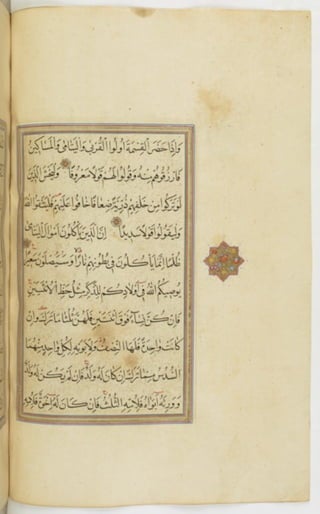 وَإِذَا حَضَرَ الْقِسْمَةَ أُولُوا الْقُرْبَىٰ وَالْيَتَامَىٰ وَالْمَسَاكِينُ
فَارْزُقُوهُمْ مِنْهُ وَقُولُوا لَهُمْ قَوْلًا مَعْرُوفًا وَلْيَخْشَ الَّذِينَ
لَوْ تَرَكُوا مِنْ خَلْفِهِمْ ذُرِّيَّةً ضِعَافًا خَافُوا عَلَيْهِمْ فَلْيَتَّقُوا اللَّهَ
وَلْيَقُولُوا قَوْلًا سَدِيدًا إِنَّ الَّذِينَ يَأْكُلُونَ أَمْوَالَ الْيَتَامَىٰ
ظُلْمًا إِنَّمَا يَأْكُلُونَ فِي بُطُونِهِمْ نَارًا وَسَيَصْلَوْنَ سَعِيرًا
يُوصِيكُمُ اللَّهُ فِي أَوْلَادِكُمْ لِلذَّكَرِ مِثْلُ حَظِّ الْأُنْثَيَيْنِ
فَإِنْ كُنَّ نِسَاءً فَوْقَ اثْنَتَيْنِ فَلَهُنَّ ثُلُثَا مَا تَرَكَ وَإِنْ
كَانَتْ وَاحِدَةً فَلَهَا النِّصْفُ وَلِأَبَوَيْهِ لِكُلِّ وَاحِدٍ مِنْهُمَا
السُّدُسُ مِمَّا تَرَكَ إِنْ كَانَ لَهُ وَلَدٌ فَإِنْ لَمْ يَكُنْ لَهُ وَلَدٌ
وَوَرِثَهُ أَبَوَاهُ فَلِأُمِّهِ الثُّلُثُ فَإِنْ كَانَ لَهُ إِخْوَةٌ فَلِأُمِّهِ